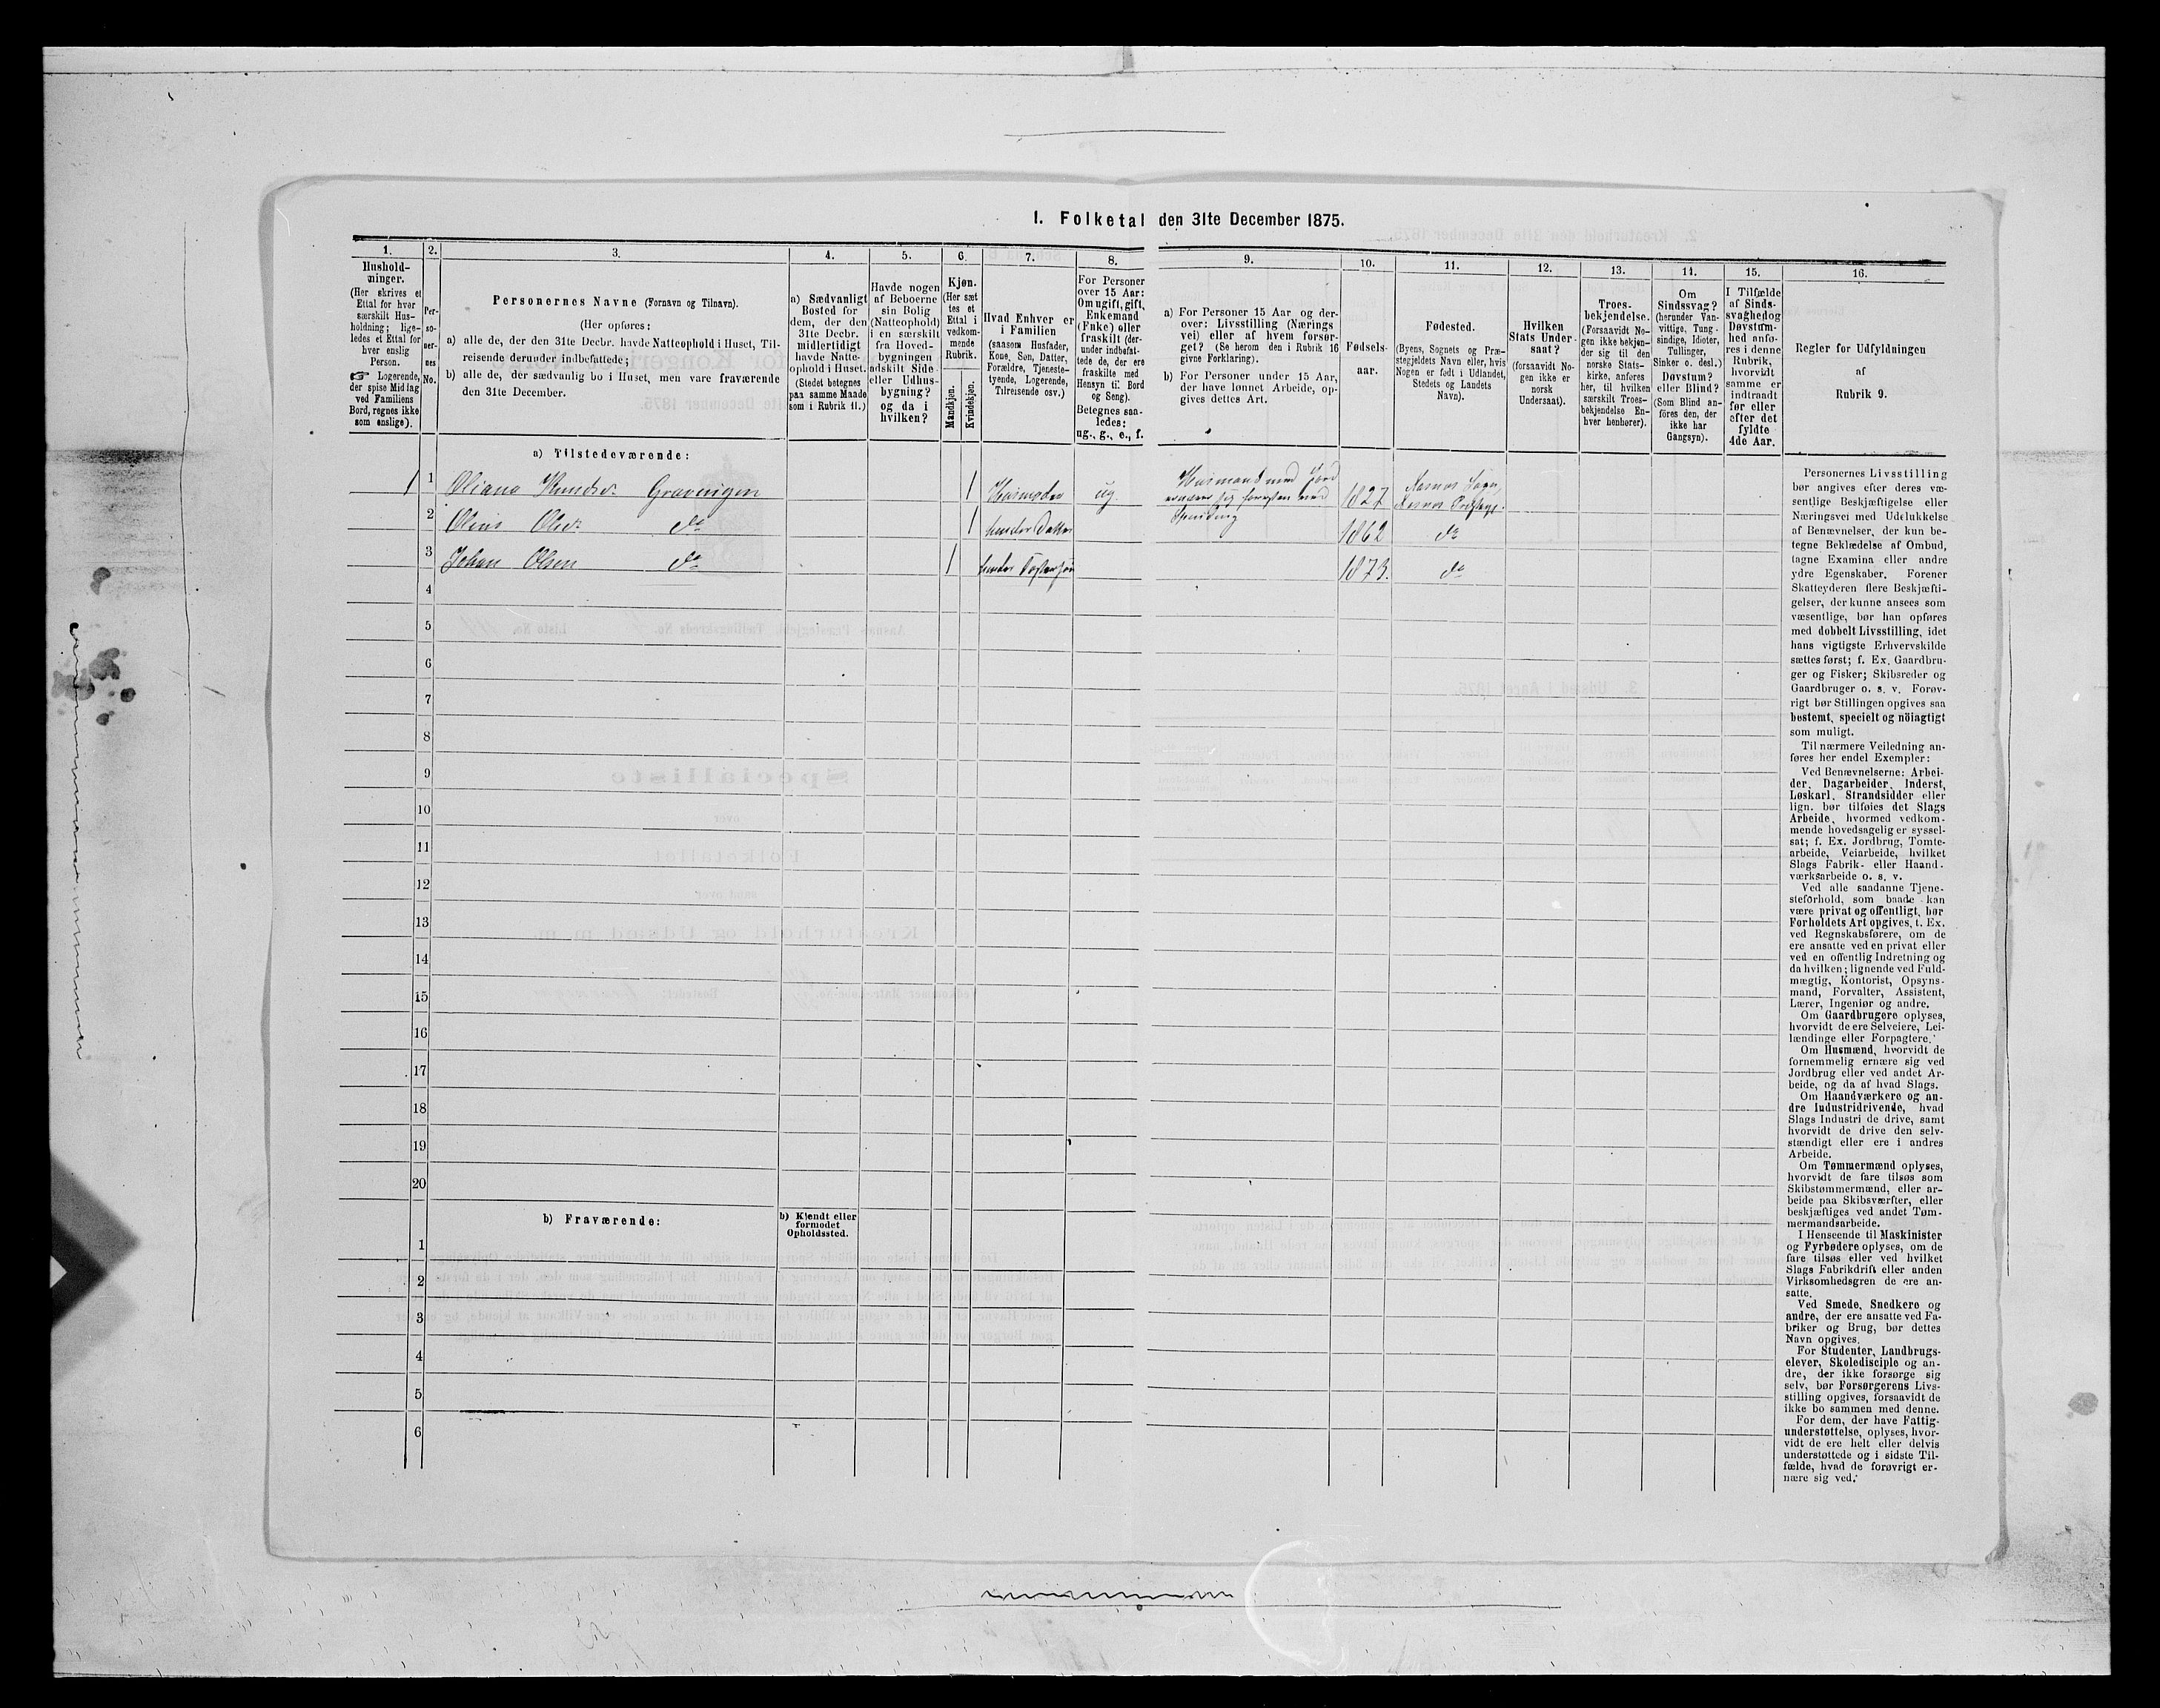 I. Folketal den 31te December 1875.
1. 2. 3. 4. 5. 6. 7. 8. 9. 10. 11. 12. 13. 14. 15. 16.
Hushold-
ninger.
(Her skrives et
Ettal for hver
særskilt Hus-
holdning; lige-
ledes et Ettal for
hver enslig
Person.
☞ Logerende,
der spise Middag
ved Familiens
Bord, regnes ikke
som enslige).
Per-
so-
ner-
nes
No.
Personernes Navne (Fornavn og Tilnavn).
(Her opføres:
a) alle de, der den 31te Decbr. havde Natteophold i Huset, Til-
reisende derunder indbefattede;
b) alle de, der sædvanlig bo i Huset, men vare fraværende
den 31te December.
a) Sædvanligt
Bosted for
dem, der den
31te Decbr.
midlertidigt
havde Natte-
ophold i Huset.
(Stedet betegnes
paa samme Maade
som i Rubrik 11.)
Havde nogen
af Beboerne
sin Bolig
(Natteophold)
i en særskilt
fra Hoved-
bygningen
adskilt Side-
eller Udhus-
bygning?
og da i
hvilken?
Kjøn.
(Her sæt-
tes et
Ettal i
vedkom-
mende
Rubrik.
Mandkjøn.
Kvindekjøn.
Hvad Enhver er
i Familien
(saasom Husfader,
Kone, Søn, Datter,
Forældre, Tjeneste-
tyende, Logerende,
Tilreisende osv.)
For Personer
over 15 Aar:
Om ugift, gift,
Enkemand
(Enke) eller
fraskilt (der-
under indbefat-
tede de, der ere
fraskilte med
Hensyn til Bord
og Seng).
Betegnes saa-
ledes:
ug., g., e., f.
a) For Personer 15 Aar og der-
over: Livsstilling (Nærings-
vei) eller af hvem forsør-
get? (Se herom den i Rubrik 16
givne Forklaring).
b) For Personer under 15 Aar,
der have lønnet Arbeide, op-
gives dettes Art.
Fødsels-
aar.
Fødested.
(Byens, Sognets og Præ-
stegjeldets Navn eller, hvis
Nogen er født i Udlandet,
Stedets og Landets
Navn).
Hvilken
Stats Under-
saat?
(forsaavidt No-
gen ikke er
norsk
Undersaat).
Troes-
bekjendelse.
(Forsaavidt No-
gen ikke bekjen-
der sig til den
norske Stats-
kirke, anføres
her, til hvilken
særskilt Troes-
bekjendelse En-
hver henhører).
Om
Sindssvag?
(herunder Van-
vittige, Tung-
sindige, Idioter,
Tullinger,
Sinker o. desl.)
Døvstum?
eller Blind?
(Som Blind an-
føres den, der
ikke har
Gangsyn).
I Tilfælde
af Sinds-
svaghed og
Døvstum-
hed anfø-
res i denne
Rubrik,
hvorvidt
samme er
indtraadt
før eller
efter det
fyldte
4de Aar.
Regler for Udfyldningen
af
Rubrik 9.
a) Tilstedeværende:
1 1 Oliana Knudsd. Gravningen 1 Husmoder ug. Husmand med Jord 1827 Aasnes Sogn,
Aasnes Præstegj.
2 Olivia Olsd. do 1 hendes Datter 1862 do
3 Johan Olsen do 1 hendes Fostersøn 1873. do
4
5
6
7
8
9
10
11
12
13
14
15
16
17
18
19
20
b) Fraværende:
b) Kjendt eller
formodet
Opholdssted.
1
2
3
4
5
6
Personernes Livsstilling
bør angives efter deres væ-
sentlige Beskjæftigelse eller
Næringsvei med Udelukkelse
af Benævnelser, der kun be-
tegne Beklædelse af Ombud,
tagne Examina eller andre
ydre Egenskaber. Forener
Skatteyderen flere Beskjæfti-
gelser, der kunne ansees som
væsentlige, bør han opføres
med dobbelt Livsstilling, idet
hans vigtigste Erhvervskilde
sættes først; f. Ex. Gaardbru-
ger og Fisker; Skibsreder og
Gaardbruger o. s. v. Forøv-
rigt bør Stillingen opgives saa
bestemt, specielt og nöiagtigt
som muligt.
Til nærmere Veiledning an-
føres her endel Exempler:
Ved Benævnelserne: Arbei-
der, Dagarbeider, Inderst,
Løskarl, Strandsidder eller
lign. bør tilføies det Slags
Arbeide, hvormed vedkom-
mende hovedsagelig er syssel-
sat; f. Ex. Jordbrug, Tomte-
arbeide, Veiarbeide, hvilket
Slags Fabrik- eller Haand-
værksarbeide o. s. v.
Ved alle saadanne Tjene-
steforhold, som baade kan
være privat og offentligt, bør
Forholdets Art opgives, f. Ex.
ved Regnskabsførere, om de
ere ansatte ved en privat eller
ved en offentlig Indretning og
da hvilken; lignende ved Fuld-
mægtig, Kontorist, Opsyns-
mand, Forvalter, Assistent,
Lærer, Ingeniør og andre.
Om Gaardbrugere oplyses,
hvorvidt de ere Selveiere, Lei-
lændinge eller Forpagtere.
Om Husmænd, hvorvidt de
fornemmelig ernære sig ved
Jordbrug eller ved andet Ar-
beide, og da af hvad Slags.
Om Haandværkere og an-
dre Industridrivende, hvad
Slags Industri de drive, samt
hvorvidt de drive den selv-
stændigt eller ere i andres
Arbeide.
Om Tømmermænd oplyses,
hvorvidt de fare tilsøs som
Skibstømmermænd, eller ar-
beide paa Skibsværfter, eller
beskjæftiges ved andet Tøm-
mermandsarbeide.
I Henseende til Maskinister
og Fyrbødere oplyses, om de
fare tilsøs eller ved hvilket
Slags Fabrikdrift eller anden
Virksomhedsgren de ere an-
satte.
Ved Smede, Snedkere og
andre, der ere ansatte ved Fa-
briker og Brug, bør dettes
Navn opgives.
For Studenter, Landbrugs-
elever, Skoledisciple og an-
dre, der ikke forsørge sig
selv, bør Forsørgerens Livs-
stilling opgives, forsaavidt de
ikke bo sammen med denne.
For dem, der have Fattig-
understøttelse, oplyses, hvor-
vidt de ere helt eller delvis
understøttede og i sidste Til-
fælde, hvad de forøvrigt er-
nære sig ved.